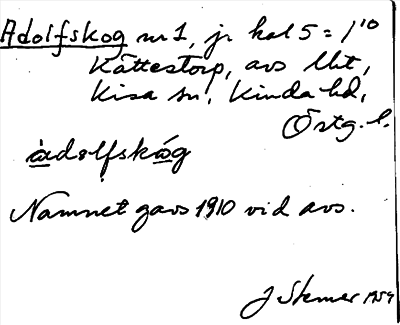 Adolfskog nr 1, jr kal 5 = 1¹⁰
Kättestorp, avs Mt,
Kisa sn, Kinda hd,
Östg. l.
àdolfskóg
Namnet gavs 1910 vid avs.
J Stemer 1959